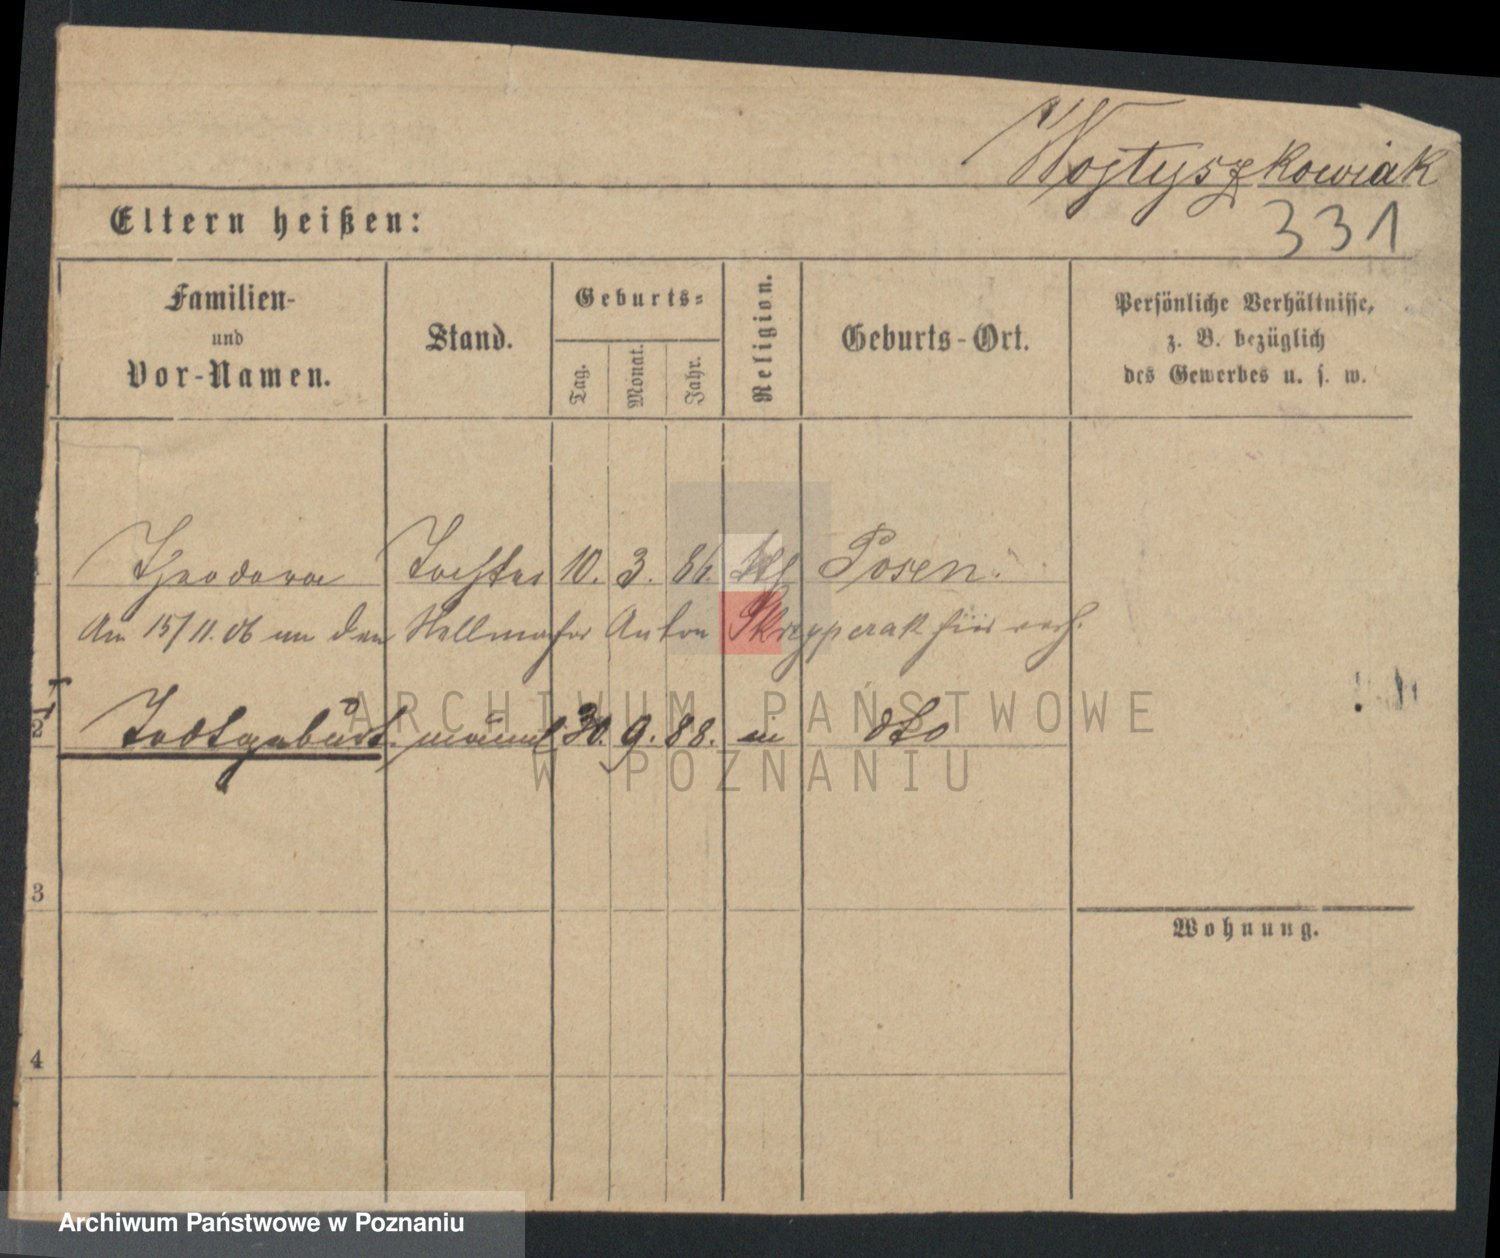 Wojtyszkowiak
331
Eltern heißen:
Familien-
und
Vor-Namen.
Stand.
Geburts-
Tag.
Monat.
Jahr.
Religion.
Geburts-Ort.
Persönliche Verhältnisse,
z. B. bezüglich
des Gewerbes u. s. w.
Theodora Tochter 10. 3. 86. kth Posen.
Am 15/11.06 an den Stellmacher Anton hier verh.
2 Todtgeburt männl. 30. 9. 88. dto
3
Wohnung.
4
ARCHIWUM PAŃSTWOWE
W POZNANIU
Archiwum Państwowe w Poznaniu